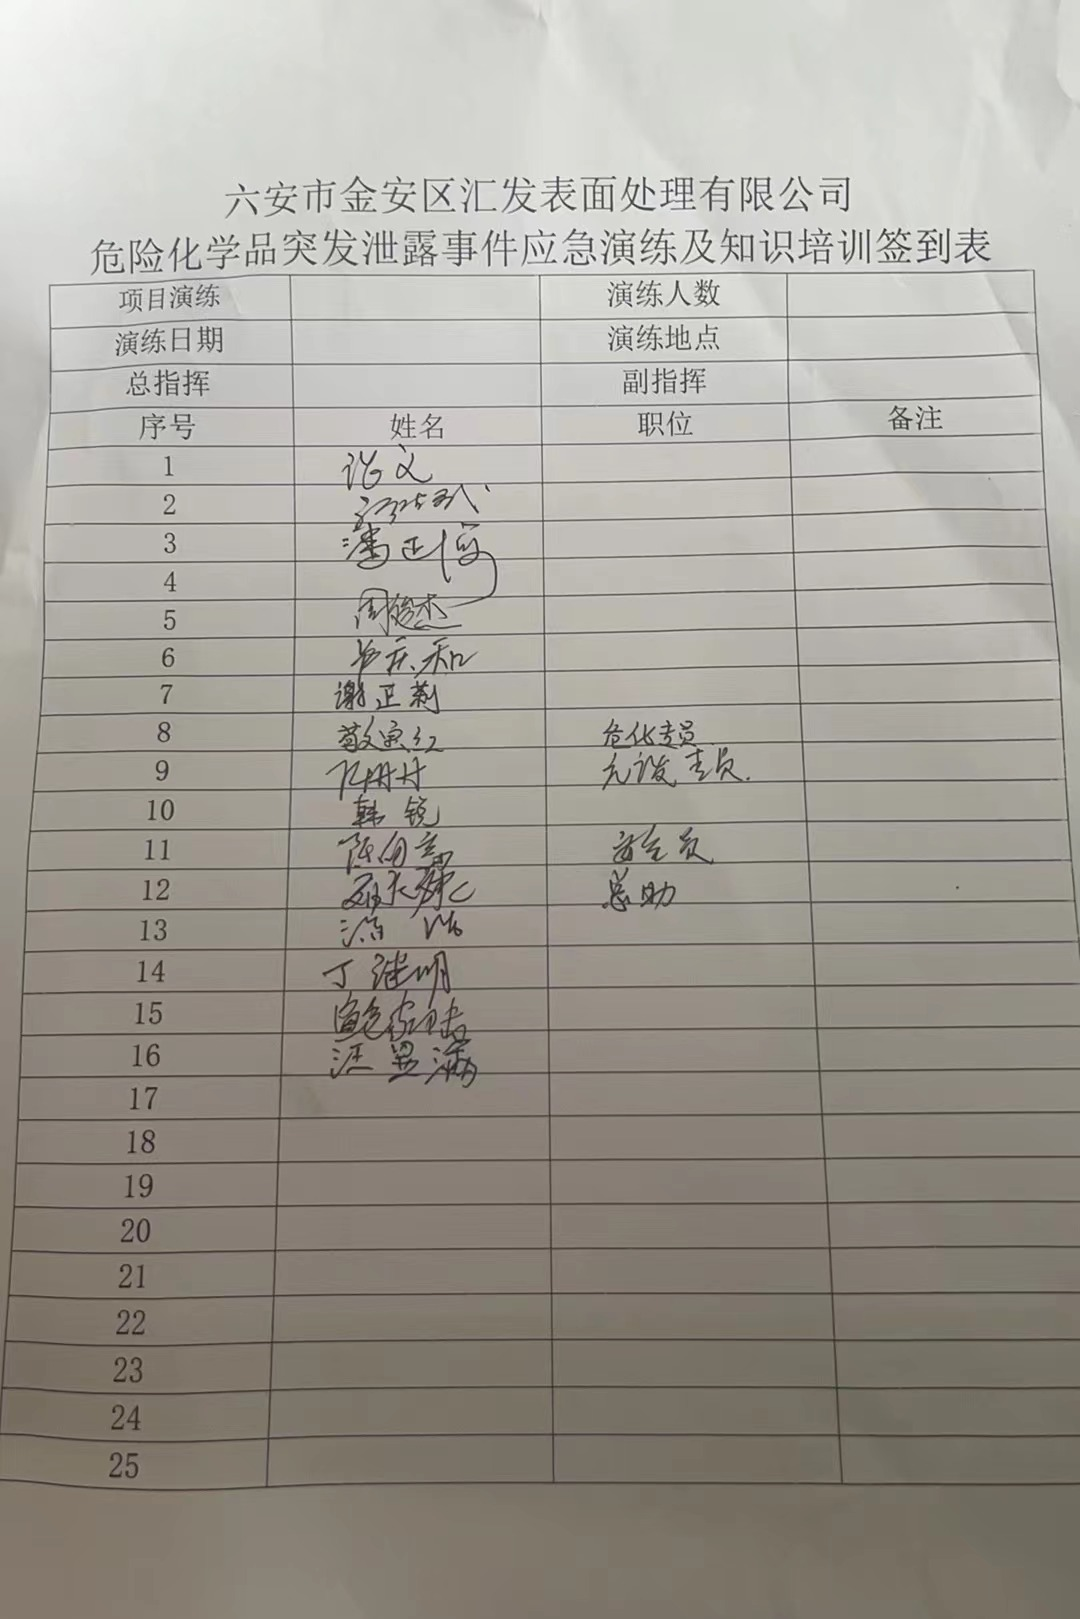 六安市金安区汇发表面处理有限公司
危险化学品突发泄露事件应急演练及知识培训签到表
项目演练 演练人数
演练日期 演练地点
总指挥 副指挥
序号 姓名 职位 备注
1
2
3 潘正
4
5 周俊杰
6
7 谢正莉
8 危化专员
9 专员
10 韩锐
11 陈向 安全员
12 总助
13
14 丁继明
15 鲍家
16 汪昱满
17
18
19
20
21
22
23
24
25